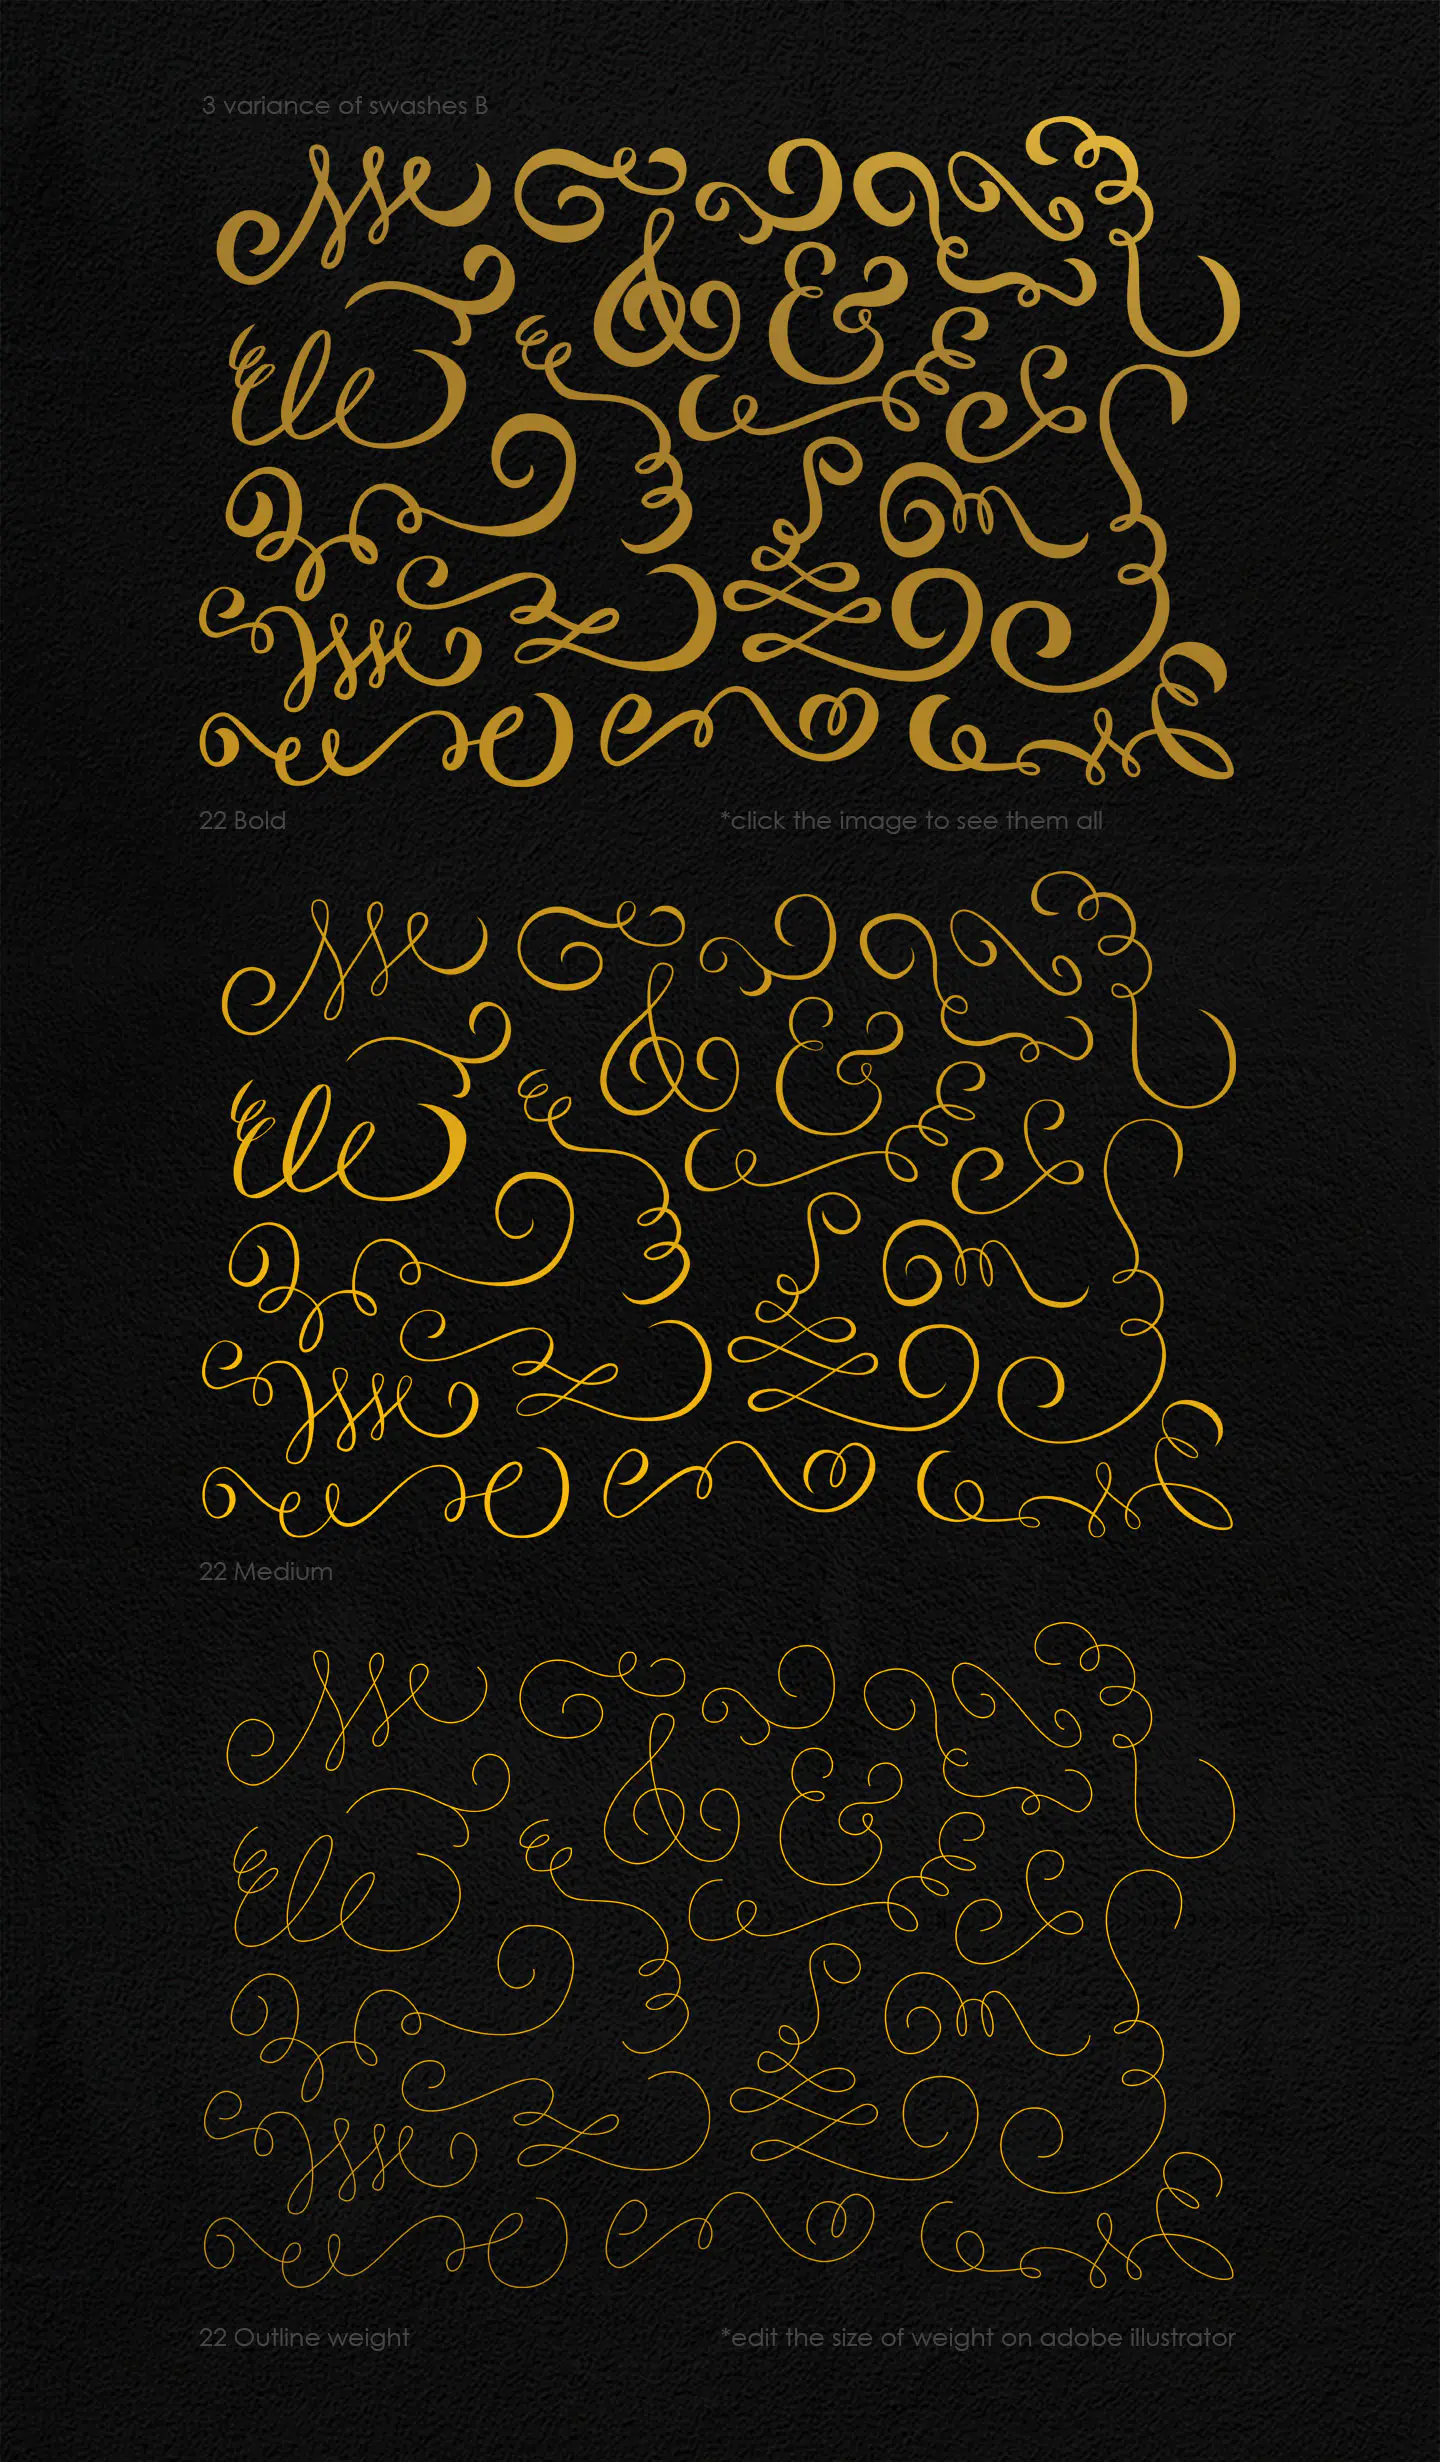 3 variance of swashes B
& &
22 Bold
*click the image to see them all
& &
22 Medium
& &
22 Outline weight
*edit the size of weight on adobe illustrator